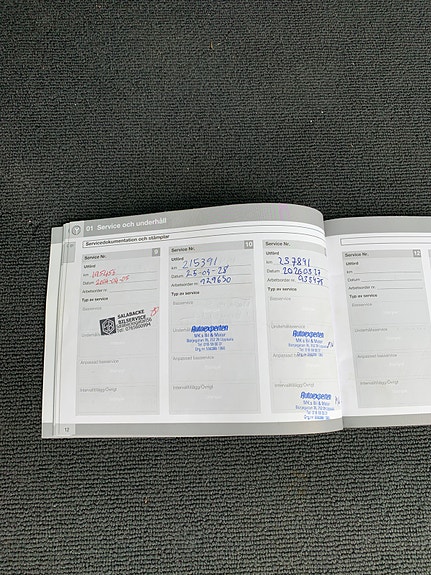 01 Service och underhåll
Servicedokumentation och stämplar
Service Nr. 9
Utförd
km
Datum
Arbetsorder nr
Typ av service
Basservice
SALABACKE
BILSERVICE
Anpassad basservice
Intervalltillägg/Övrigt
Service Nr. 10
Utförd
km 215391
Datum 25-04-28
Arbetsorder nr 729650
Typ av service
Basservice
Underhållsservice
Autoexperten
MK:s Bil & Motor
Anpassad basservice
Intervalltillägg/Övrigt
Service Nr.
Utförd
km 237891
Datum
Arbetsorder nr
Typ av service
Basservice
Underhållsservice
Autoexperten
MK:s Bil & Motor
Anpassad basservice
Intervalltillägg/Övrigt
Autoexperten
MK:s Bil & Motor
Service Nr. 12
Utförd
km
Datum
Arbetsorder nr
Typ av service
Basservice
Underhållsservice
Anpassad basservice
Intervalltillägg/Övrigt
12